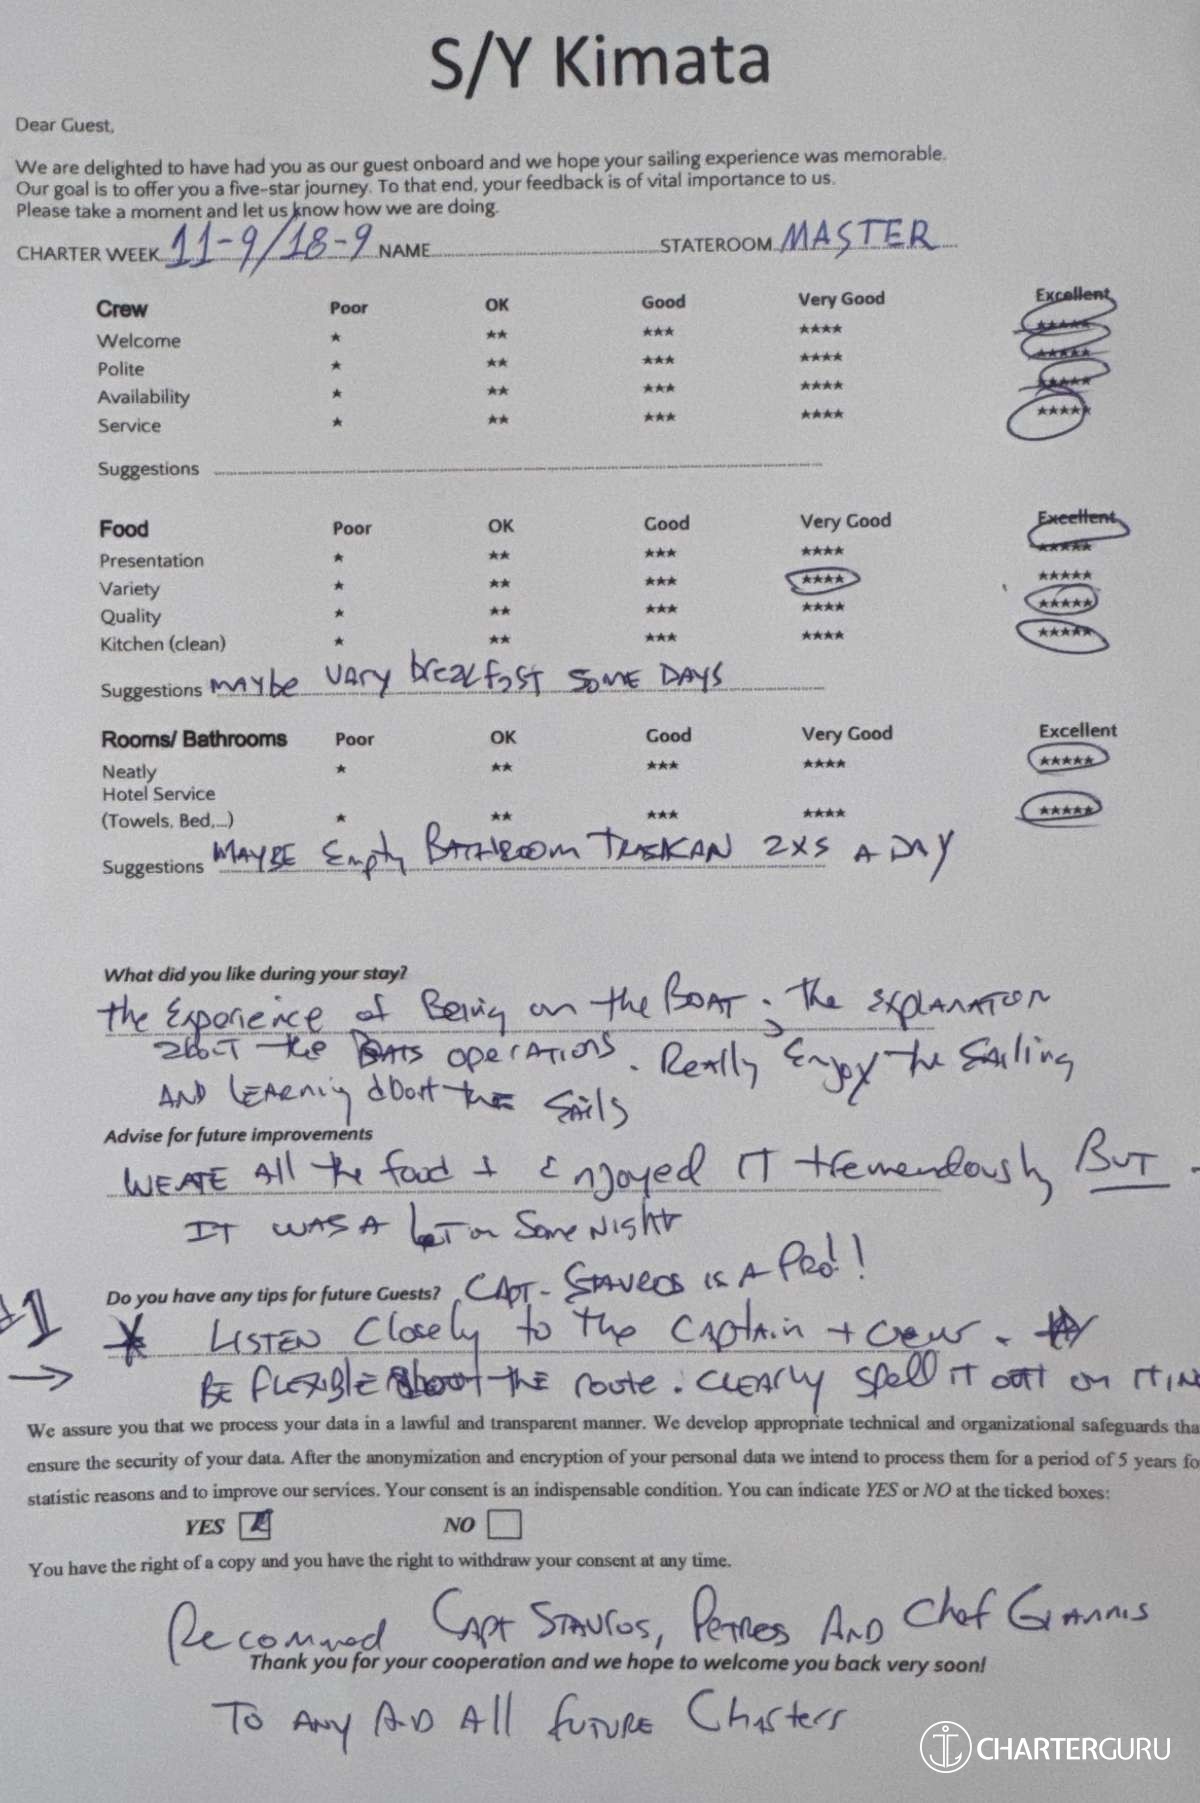 S/Y Kimata
Dear Guest,
We are delighted to have had you as our guest onboard and we hope your sailing experience was memorable.
Our goal is to offer you a five-star journey. To that end, your feedback is of vital importance to us.
Please take a moment and let us know how we are doing.
CHARTER WEEK 11-9/18-9 NAME STATEROOM MASTER
Crew Poor OK Good Very Good Excellent
Welcome ★ ★★ ★★★ ★★★★ ★★★★★
Polite ★ ★★ ★★★ ★★★★ ★★★★★
Availability ★ ★★ ★★★ ★★★★ ★★★★★
Service ★ ★★ ★★★ ★★★★ ★★★★★
Suggestions
Food Poor OK Good Very Good Excellent
Presentation ★ ★★ ★★★ ★★★★ ★★★★★
Variety ★ ★★ ★★★ ★★★★ ★★★★★
Quality ★ ★★ ★★★ ★★★★ ★★★★★
Kitchen (clean) ★ ★★ ★★★ ★★★★ ★★★★★
Suggestions MAYbe VARY breakfast SOME DAYS
Rooms/ Bathrooms Poor OK Good Very Good Excellent
Neatly ★ ★★ ★★★ ★★★★ ★★★★★
Hotel Service
(Towels, Bed,...) ★ ★★ ★★★ ★★★★ ★★★★★
Suggestions MAYBE Empty BATHROOM TRASHCAN 2XS A DAY
What did you like during your stay?
the Experience of Being on the BOAT. The EXPLANATION
about the BOATS OPERATIONS. Really Enjoy the Sailing
AND LEARNing about the Sails
Advise for future improvements
WE ATE All the food + Enjoyed IT tremendously BUT -
IT WAS A LOT on Some Night
Do you have any tips for future Guests? CAPT- STAVROS IS A PRO!!
#1 LISTEN Closely to the Captain + crew.
→ BE FLEXIBLE About the route. CLEARLY spell IT OUT on ITIN
We assure you that we process your data in a lawful and transparent manner. We develop appropriate technical and organizational safeguards tha
ensure the security of your data. After the anonymization and encryption of your personal data we intend to process them for a period of 5 years fo
statistic reasons and to improve our services. Your consent is an indispensable condition. You can indicate YES or NO at the ticked boxes:
YES NO
You have the right of a copy and you have the right to withdraw your consent at any time.
Recommed CAPT STAVROS, PETROS AND Chef GIANNIS
Thank you for your cooperation and we hope to welcome you back very soon!
TO ANY AND All FUTURE Charters
CHARTERGURU